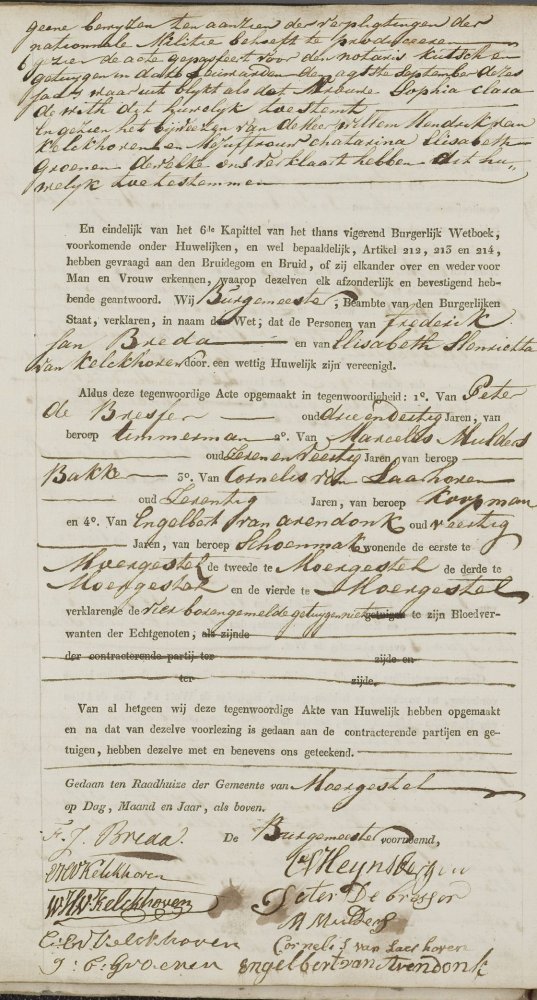 geene bewyzen ten aanzien der verpligtingen der
nationale Militie behoeft te produceere
de acte gepasseert voor den notaris en
getuigen in de den September dezes
Jaars waar uit blykt als dat Sophia Clara
de with dit huwelyk toestemt
het byweezen van de Heer Willem Hendrik van
Kelckhoven en Mejuffrouw Chatarina Elisabeth
Groenen derzelve ons verklaart hebben dit hu-
welyk toetestemmen
En eindelijk van het 6de Kapittel van het thans vigerend Burgerlijk Wetboek,
voorkomende onder Huwelijken, en wel bepaaldelijk, Artikel 212, 213 en 214,
hebben gevraagd aan den Bruidegom en Bruid, of zij elkander over en weder voor
Man en Vrouw erkennen, waarop dezelven elk afzonderlijk en bevestigend heb-
bende geantwoord. Wij Burgemeester, Beambte van den Burgerlijken
Staat, verklaren, in naam der Wet, dat de Personen van Frederik
Jan Breda en van Elisabeth Henrichta
van Kelckhoven door een wettig Huwelijk zijn vereenigd.
Aldus deze tegenwoordige Acte opgemaakt in tegenwoordigheid: 1o. Van Peter
de Bresser oud drie en dertig Jaren, van
beroep timmerman 2o. Van Marcelis Mulders
oud zeven en veertig Jaren, van beroep
Bakker 3o. Van Cornelis van Laarhoven
oud zeventig Jaren, van beroep Koopman
en 4o. Van Engelbert van arendonk oud veertig
Jaren, van beroep Schoenmaker wonende de eerste te
Moergestel de tweede te Moergestel de derde te
Moergestel en de vierde te Moergestel
verklarende de vier bovengemelde getuygen niet getuigen te zijn Bloedver-
wanten der Echtgenoten, als zijnde
der contracterende partij ter zijde en
ter zijde.
Van al hetgeen wij deze tegenwoordige Akte van Huwelijk hebben opgemaakt
en na dat van dezelve voorlezing is gedaan aan de contracterende partijen en ge-
tuigen, hebben dezelve met en benevens ons geteekend.
Gedaan ten Raadhuize der Gemeente van Moergestel
op Dag, Maand en Jaar, als boven.
F. J. Breda. De Burgemeester voornoemd,
EHVKelckhoven
WHVKelckhoven Peter De bresser
M Mulders
C: E: V Kelckhoven Cornelis van Laerhoven
g: E: Groenen Engelbert van Arendonk